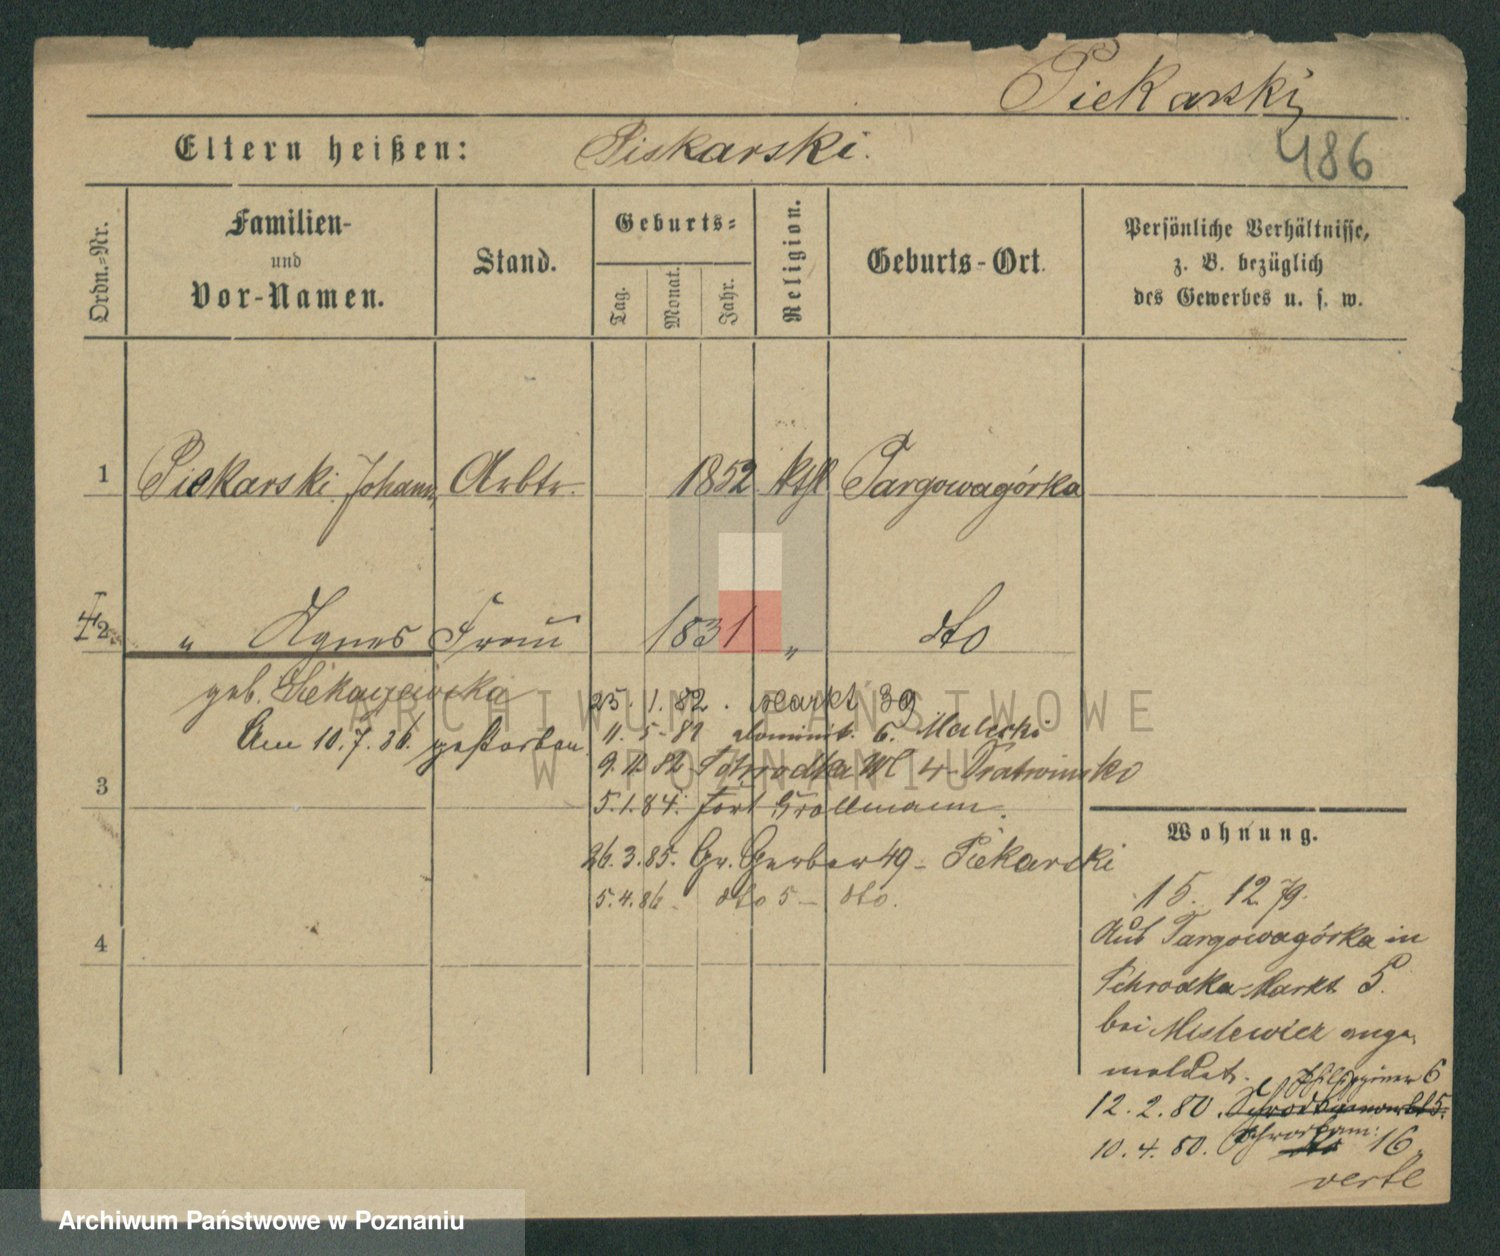 Piekarski
Eltern heißen: Piekarski.
486
Ordn.-Nr.
Familien-
und
Vor-Namen.
Stand.
Geburts-
Tag.
Monat.
Jahr.
Religion.
Geburts-Ort.
Persönliche Verhältnisse,
z. B. bezüglich
des Gewerbes u. s. w.
1 Piekarski Johann Arbtr. 1852 kthl Targowagórka
2 " Agnes Frau 1831 " dto
geb.
Am 10.7.86 gestorben
25.1.82. Markt 39
11.5.82 Dominik. 6. Malecki
9. 82 Schrodka M 4
5.1.84. Fort Grollmann.
26.3.85. Gr. Gerber 49 - Piekarski
5.4.86 - dto 5 - dto.
3
4
Wohnung.
15. 12. 79.
Aus Targowagórka in
Schrodka Markt 5.
bei Mislewicz ange-
meldet.
12.2.80. Schrodkamarkt 5.
10.4.80. dto 16
verte
ARCHIWUM PAŃSTWOWE
W POZNANIU
Archiwum Państwowe w Poznaniu